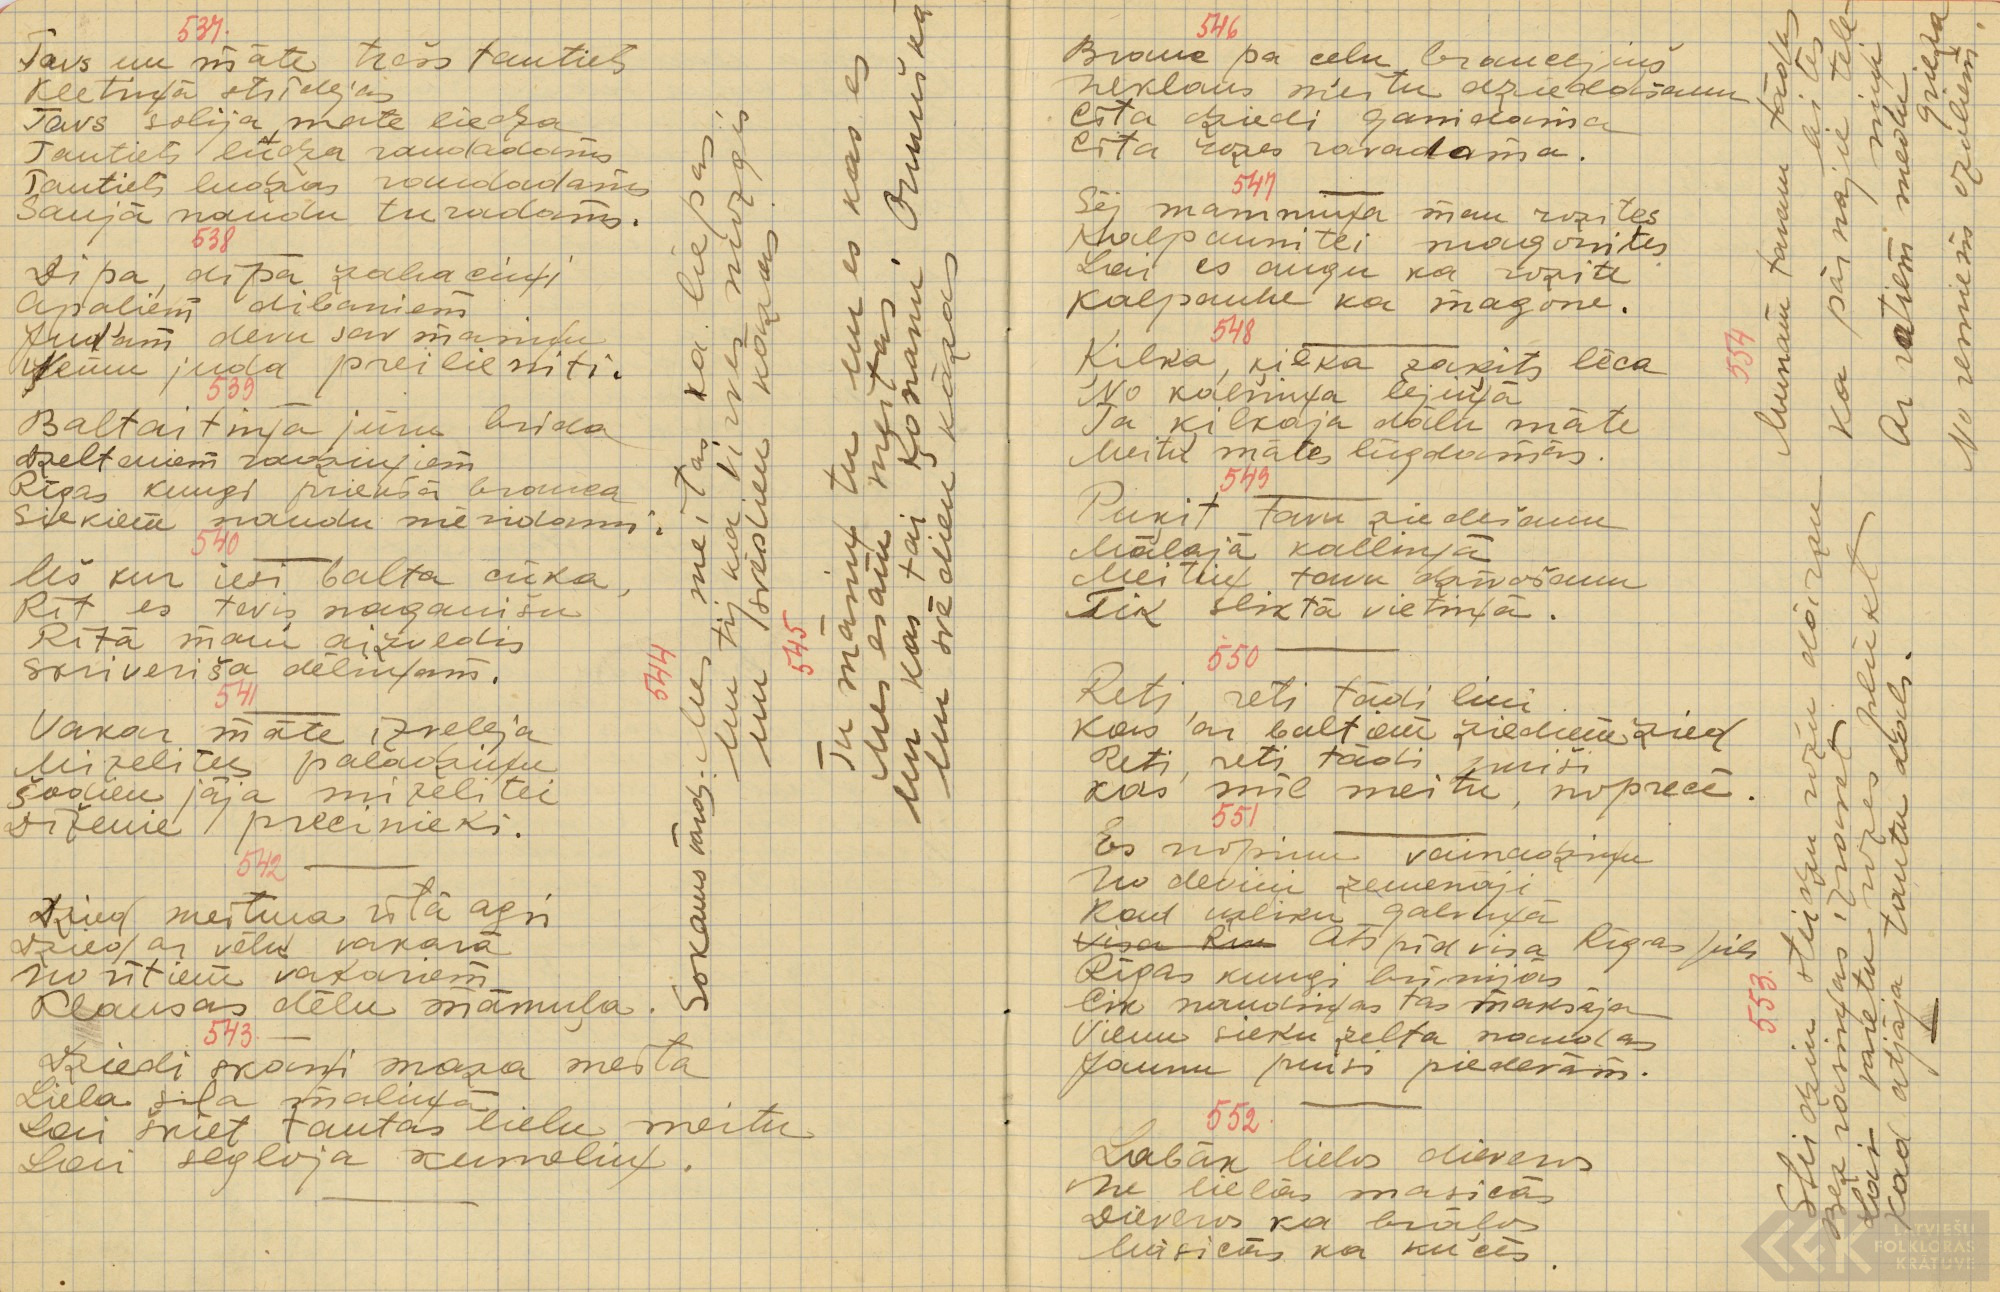 537.
Tavs un māte trešs tautiets
Kletiņā strīdejas
Tavs solija, mate liedza
Tautiets lūdza raudadams
Tautiets ludzas raudadams
Saujā naudu turadams.
538
Dipa, dipa zabaciņi
Apaliem dibaniem
Judam devu sav maniņu
Ņemu juda preilieniti.
539
Baltaitiņa jūru brida
Dzeltaniem radziņiem
Rīgas kungi priekšā brauca
Siekiem naudu mēridami.
540
Uš kur iesi balta cūka,
Rīt es tevis naganišu
Rītā mani aizvedis
Skriveriša dēliņam.
541
Vakar māte izveleja
Mirelites paladziņu
Šodien jāja mirelitei
Diženie precinieki.
542
Dzied meitiņa rītā agri
Dzied ar vēlu vakarā
No rītiem vakariem
Klausas dēlu māmuļa.
543
Dziedi skaņi maza meita
Liela sila maliņā
Lai šķiet tautas lielu meitu
Lai segloja kumeliņ.
544
Sokaus vārdi. Mes meitas ka liepas
Un tij kuiļi ves nivezgis
Un svēdien kāzas
545
Tu māmiņ tu un es kas es
Mes esam meitas
Un kas tai Konami, Omuškā
Un svēdien kāzas
546
Brauc pa celu braucejiņš
Neklaus meitu dziedašanu
Cita dziedi ganidama
Cita rozes ravadama.
547
Sēj mammiņa man rozites
Kalpaunitei magonites
Lai es augu ka rozite
Kalpaune ka magone.
548
Kilka, kilka zakits lēca
No kalniņa lejiņā
Ta kilkaja dēlu māte
Meitu mātes lūgdamās.
549
Pukit tavu ziedešanu
Mālajā kalliņā
Meitiņ tavu dzivošanu
Tik sliktā vietiņā.
550
Reti, reti tādi lini
Kas ar baltiem ziediem zied
Reti, reti tādi puiši
Kas mīl meitu, noprecē.
551
Es nopinu vainadziņu
No devini zemenāji
Kad uzliku galviņā
Visa Rīu Atspīd visa Rīgas pils
Rīgas kungi brīnijas
Cik naudiņas tas maksāja
Vienu sieku zelta naudas
Jaunu puisi piedevām.
552
Labāk lielos dieveros
Ne lielās masicās
Dieveros ka brālos
Māsicās ka kucēs.
553.
Steidzin steidzu rožu dārzu
Bez rozingas izravet
Lai varetu rozes plūkt
Kad atjāja tautu dēls.
554
Munam tavam tādas bites
Ka pārnaju telites
Ar ratiem medu mina
No remiem ozoliem.